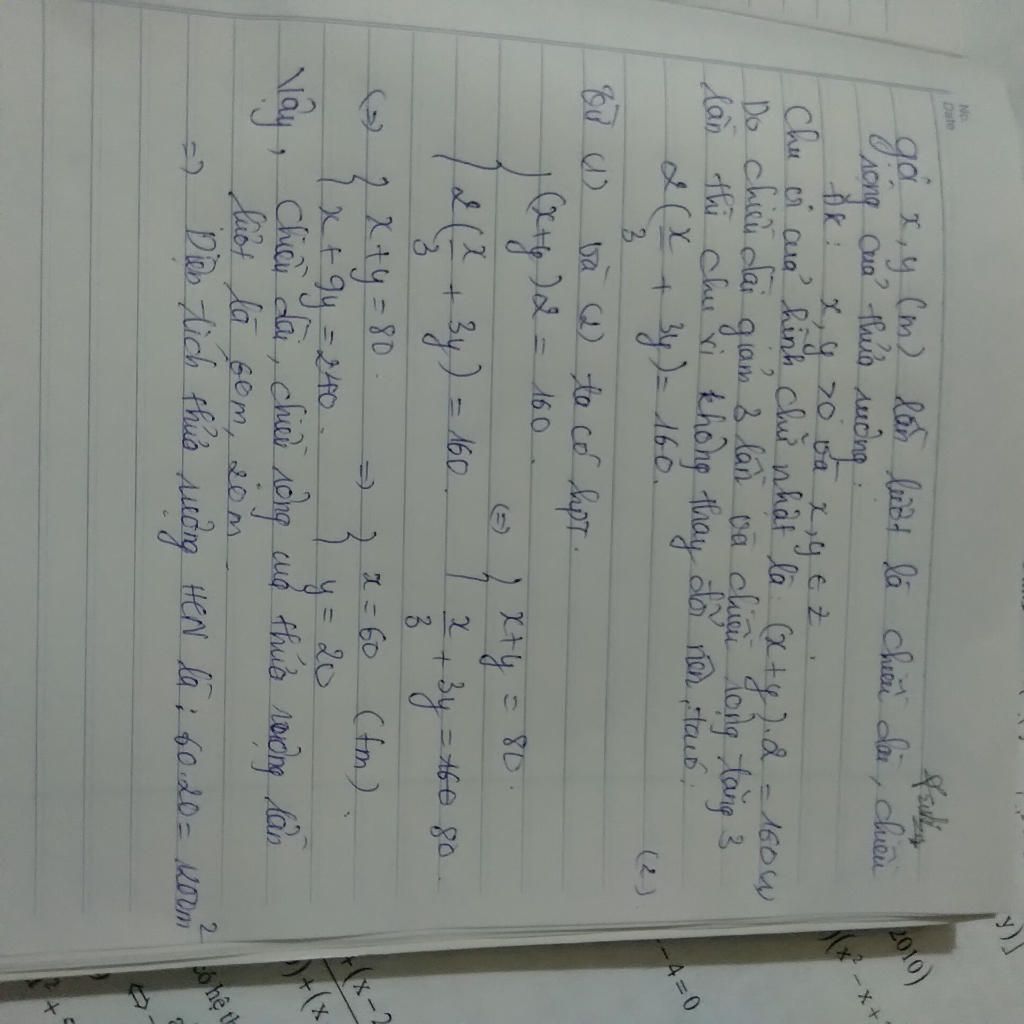 No.
Date
Gọi x, y (m) lần lượt là chiều dài, chiều
rộng của thửa ruộng.
ĐK: x, y > 0 và x, y ∈ Z.
Chu vi của hình chữ nhật là (x+y).2 = 160 (1)
Do chiều dài giảm 3 lần và chiều rộng tăng 3
lần thì chu vi không thay đổi nên, ta có:
2(x/3 + 3y) = 160. (2)
Từ (1) và (2) ta có hpt.
{ (x+y)2 = 160. <=> { x+y = 80.
{ 2(x/3 + 3y) = 160. { x/3 + 3y = 80.
(=) { x+y = 80. => { x = 60 (tm).
{ x + 9y = 240. { y = 20
Vậy, chiều dài, chiều rộng của thửa ruộng lần
lượt là 60m, 20m.
=) Diện tích thửa ruộng HCN là: 60.20 = 1200m²
y))]
2010)
)(x² - x +
- 4 = 0
+(x-2
)+(x